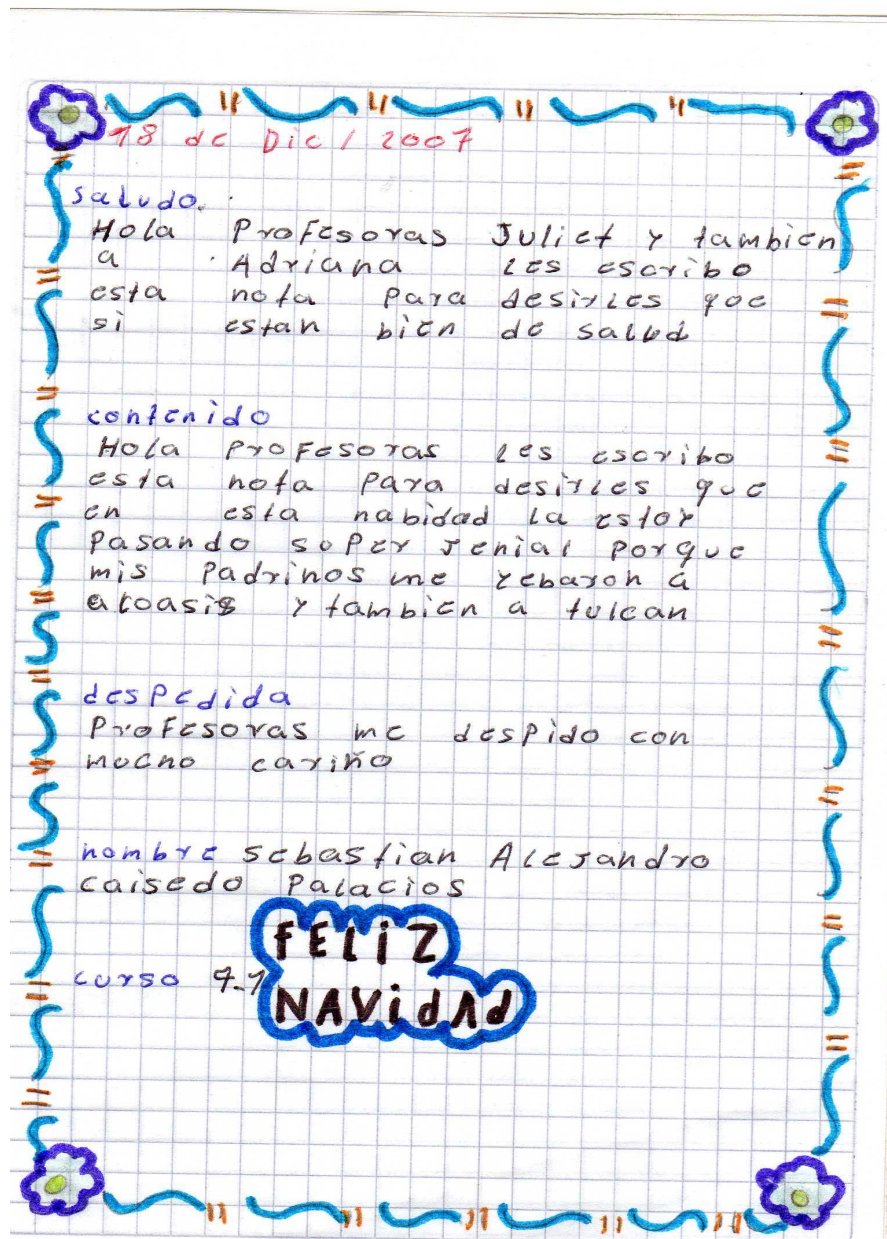 18 de Dic / 2007
saludo.
Hola Profesoras Juliet y tambien
a Adriana les escribo
esta nota para desirles que
si estan bien de salud
contenido
Hola Profesoras les escribo
esta nota para desirles que
en esta nabidad la estoy
Pasando soper Jenial porque
mis Padrinos me yebaron a
atoasis y tambien a tulcan
despedida
Profesoras me despido con
mucho cariño
nombre Sebastian Alejandro
caisedo Palacios
FELiZ
curso 7-1
NAVidAd